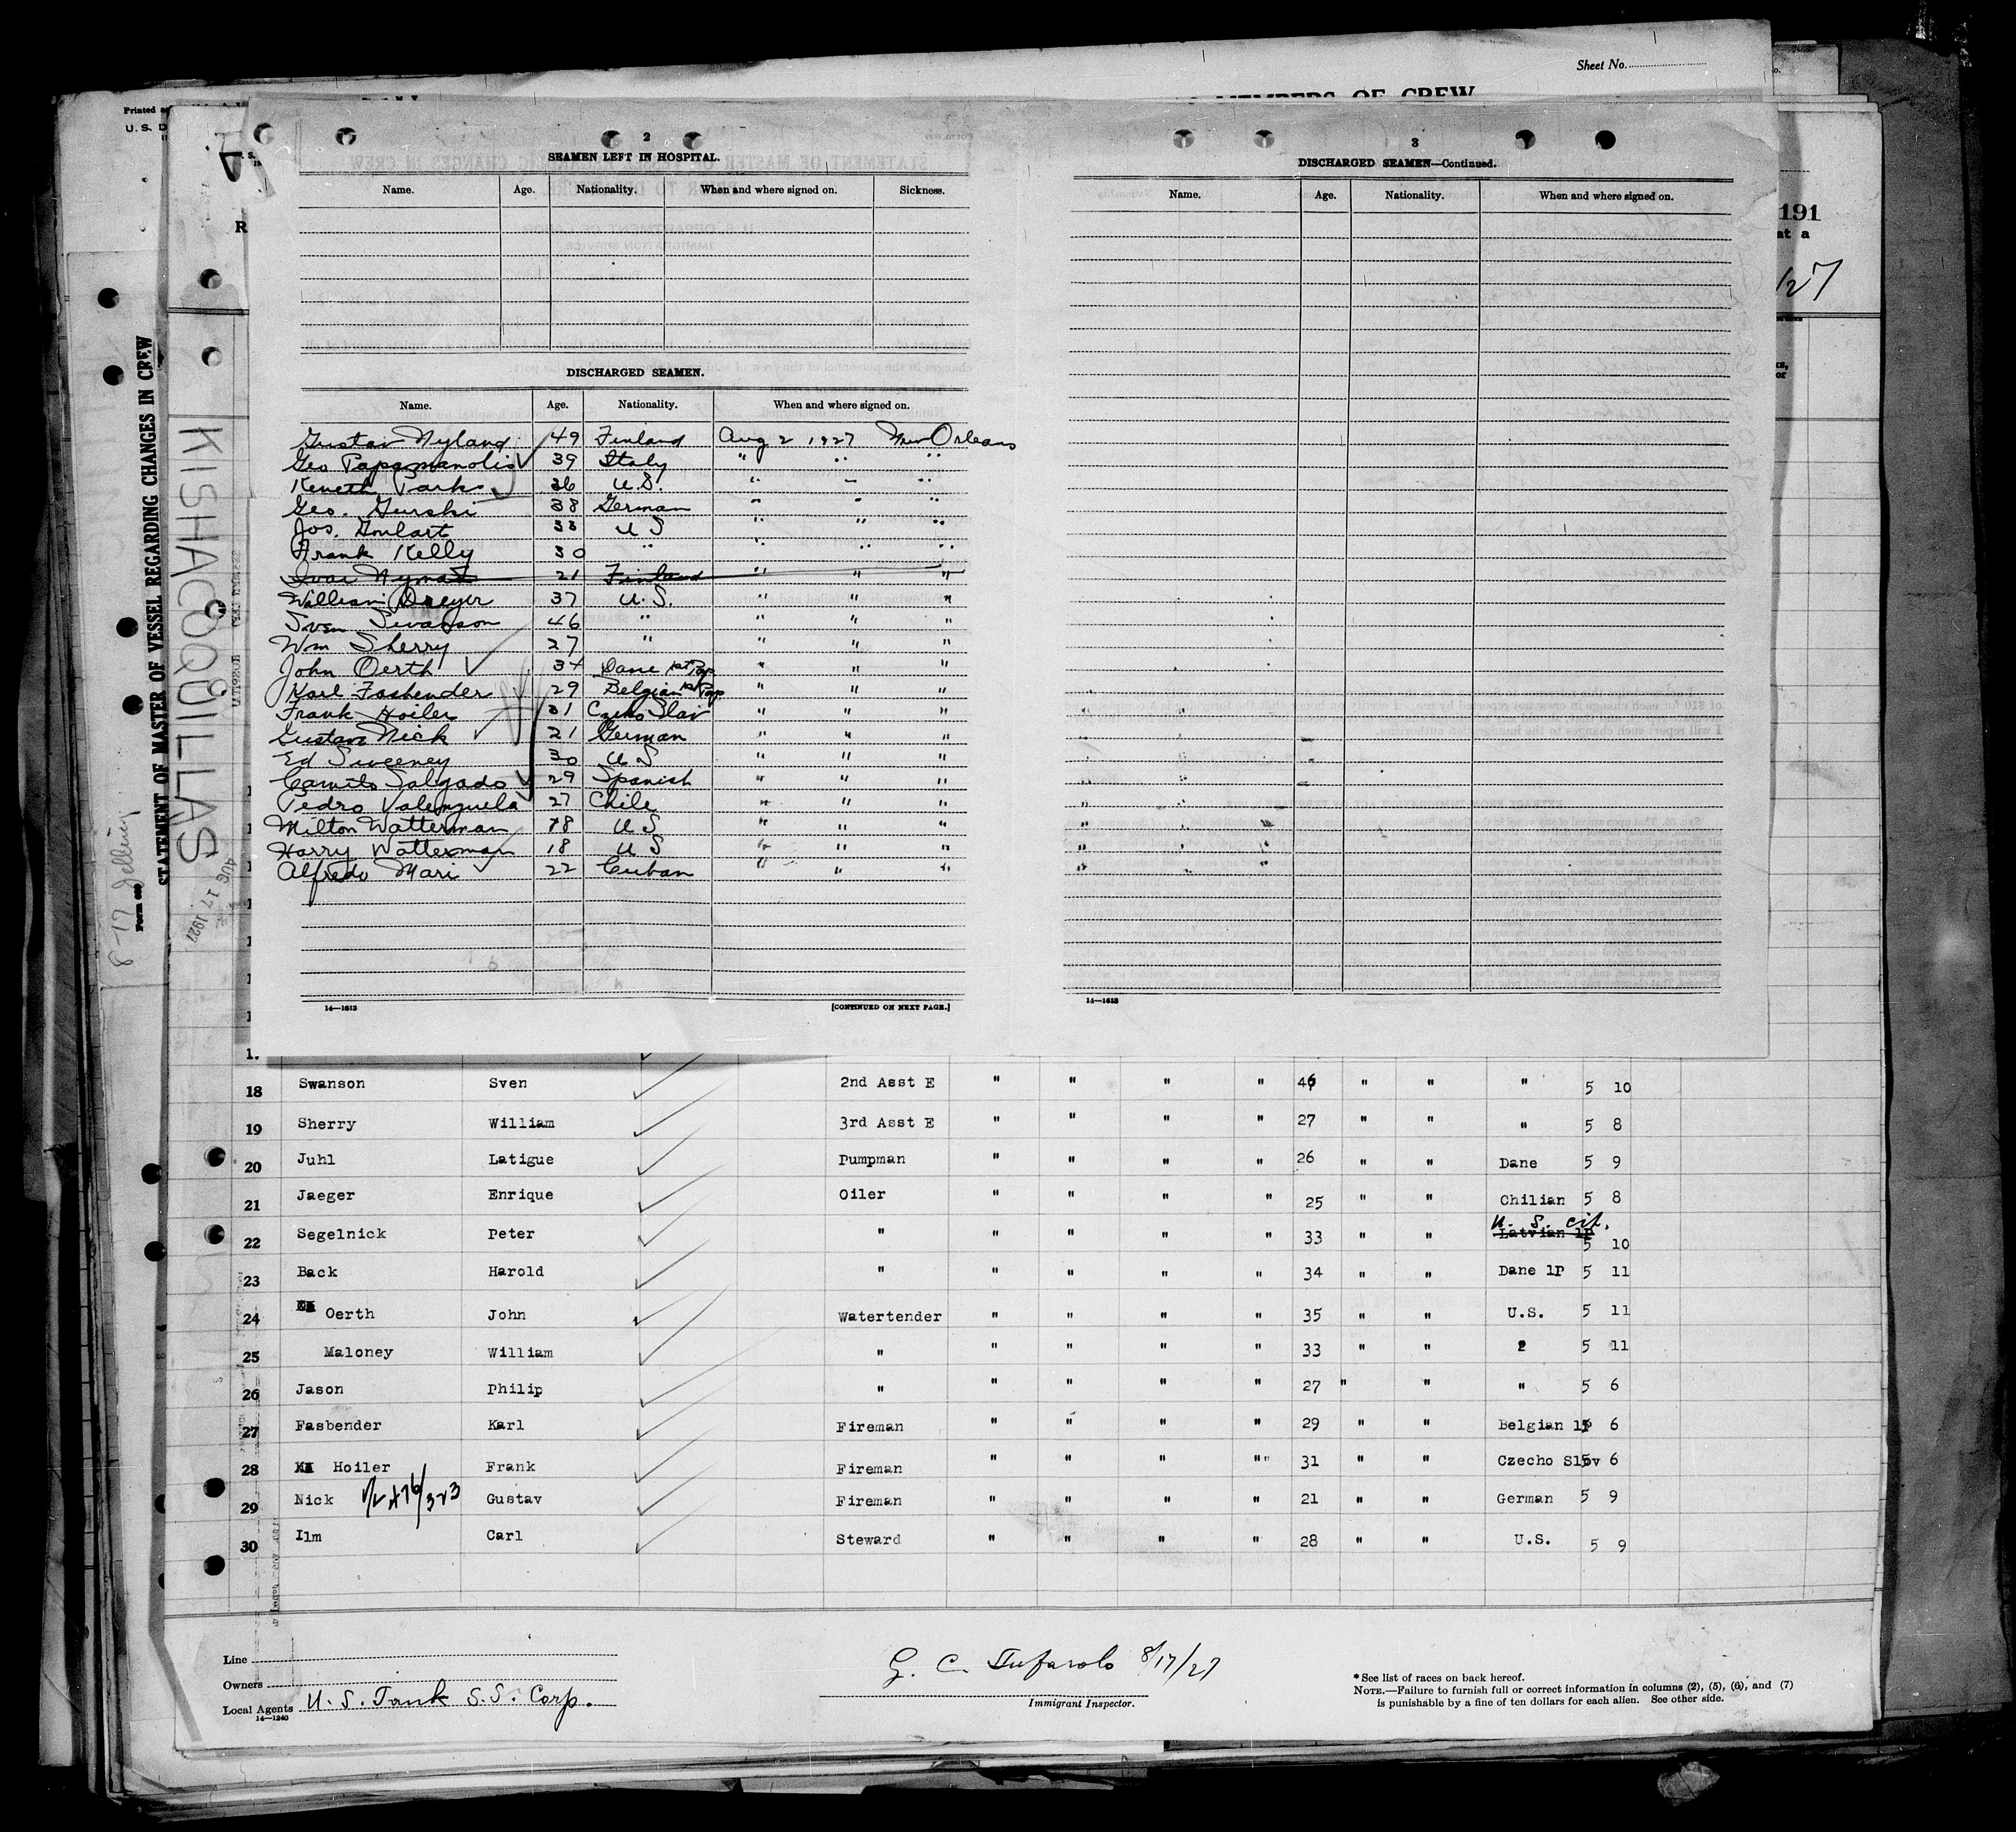 Sheet No.
MEMBERS OF CREW
Printed
U. S. D
191
at a
/27
STATEMENT OF MASTER OF VESSEL REGARDING CHANGES IN CREW
KISHACOQUILLAS
AUG 17 1927
2
SEAMEN LEFT IN HOSPITAL.
Name. Age. Nationality. When and where signed on. Sickness.
DISCHARGED SEAMEN.
Name. Age. Nationality. When and where signed on.
Gustav Nyland 49 Finland Aug 2 1927 New Orleans
Geo Papamanolis 39 Italy " " "
Keneth Parks 36 U.S. " " "
Geo. Gurski 38 German " " "
Jos. Goulart 33 U S " " "
Frank Kelly 30 " " " "
Ivar Nyman 21 Finland " " "
William Dreyer 37 U.S. " " "
Sven Swanson 46 " " " "
Wm Sherry 27 " " " "
John Oerth 34 Dane 1st Pap " " "
Karl Fasbender 29 Belgian 1st Pap " " "
Frank Hoiler 31 Czeko Slav " " "
Gustav Nick 21 German " " "
Ed Sweeney 30 U S " " "
Camito Salgado 29 Spanish " " "
Pedro Valenzuela 27 Chile " " "
Milton Watterman 18 U S " " "
Harry Watterman 18 U S " " "
Alfredo Mari 22 Cuban " " "
14—1613 [CONTINUED ON NEXT PAGE.]
3
DISCHARGED SEAMEN—Continued.
Name. Age. Nationality. When and where signed on.
14—1613
18 Swanson Sven 2nd Asst E " " " " 46 " " " 5 10
19 Sherry William 3rd Asst E " " " " 27 " " " 5 8
20 Juhl Latigue Pumpman " " " " 26 " " Dane 5 9
21 Jaeger Enrique Oiler " " " " 25 " " Chilian 5 8
U. S. cit.
22 Segelnick Peter " " " " " 33 " " Latvian 1P 5 10
23 Back Harold " " " " " 34 " " Dane 1P 5 11
24 Oerth John Watertender " " " " 35 " " U.S. 5 11
25 Maloney William " " " " " 33 " " 2 5 11
26 Jason Philip " " " " " 27 " " " 5 6
27 Fasbender Karl Fireman " " " " 29 " " Belgian 1P 5 6
28 Hoiler Frank Fireman " " " " 31 " " Czecho Slov 5 6
29 Nick Gustav Fireman " " " " 21 " " German 5 9
30 Ilm Carl Steward " " " " 28 " " U.S. 5 9
Line
Owners
Local Agents U. S. Tank S.S. Corp.
14—1240
G. C. Tufarolo 8/17/27
Immigrant Inspector.
* See list of races on back hereof.
NOTE.—Failure to furnish full or correct information in columns (2), (5), (6), and (7)
is punishable by a fine of ten dollars for each alien. See other side.